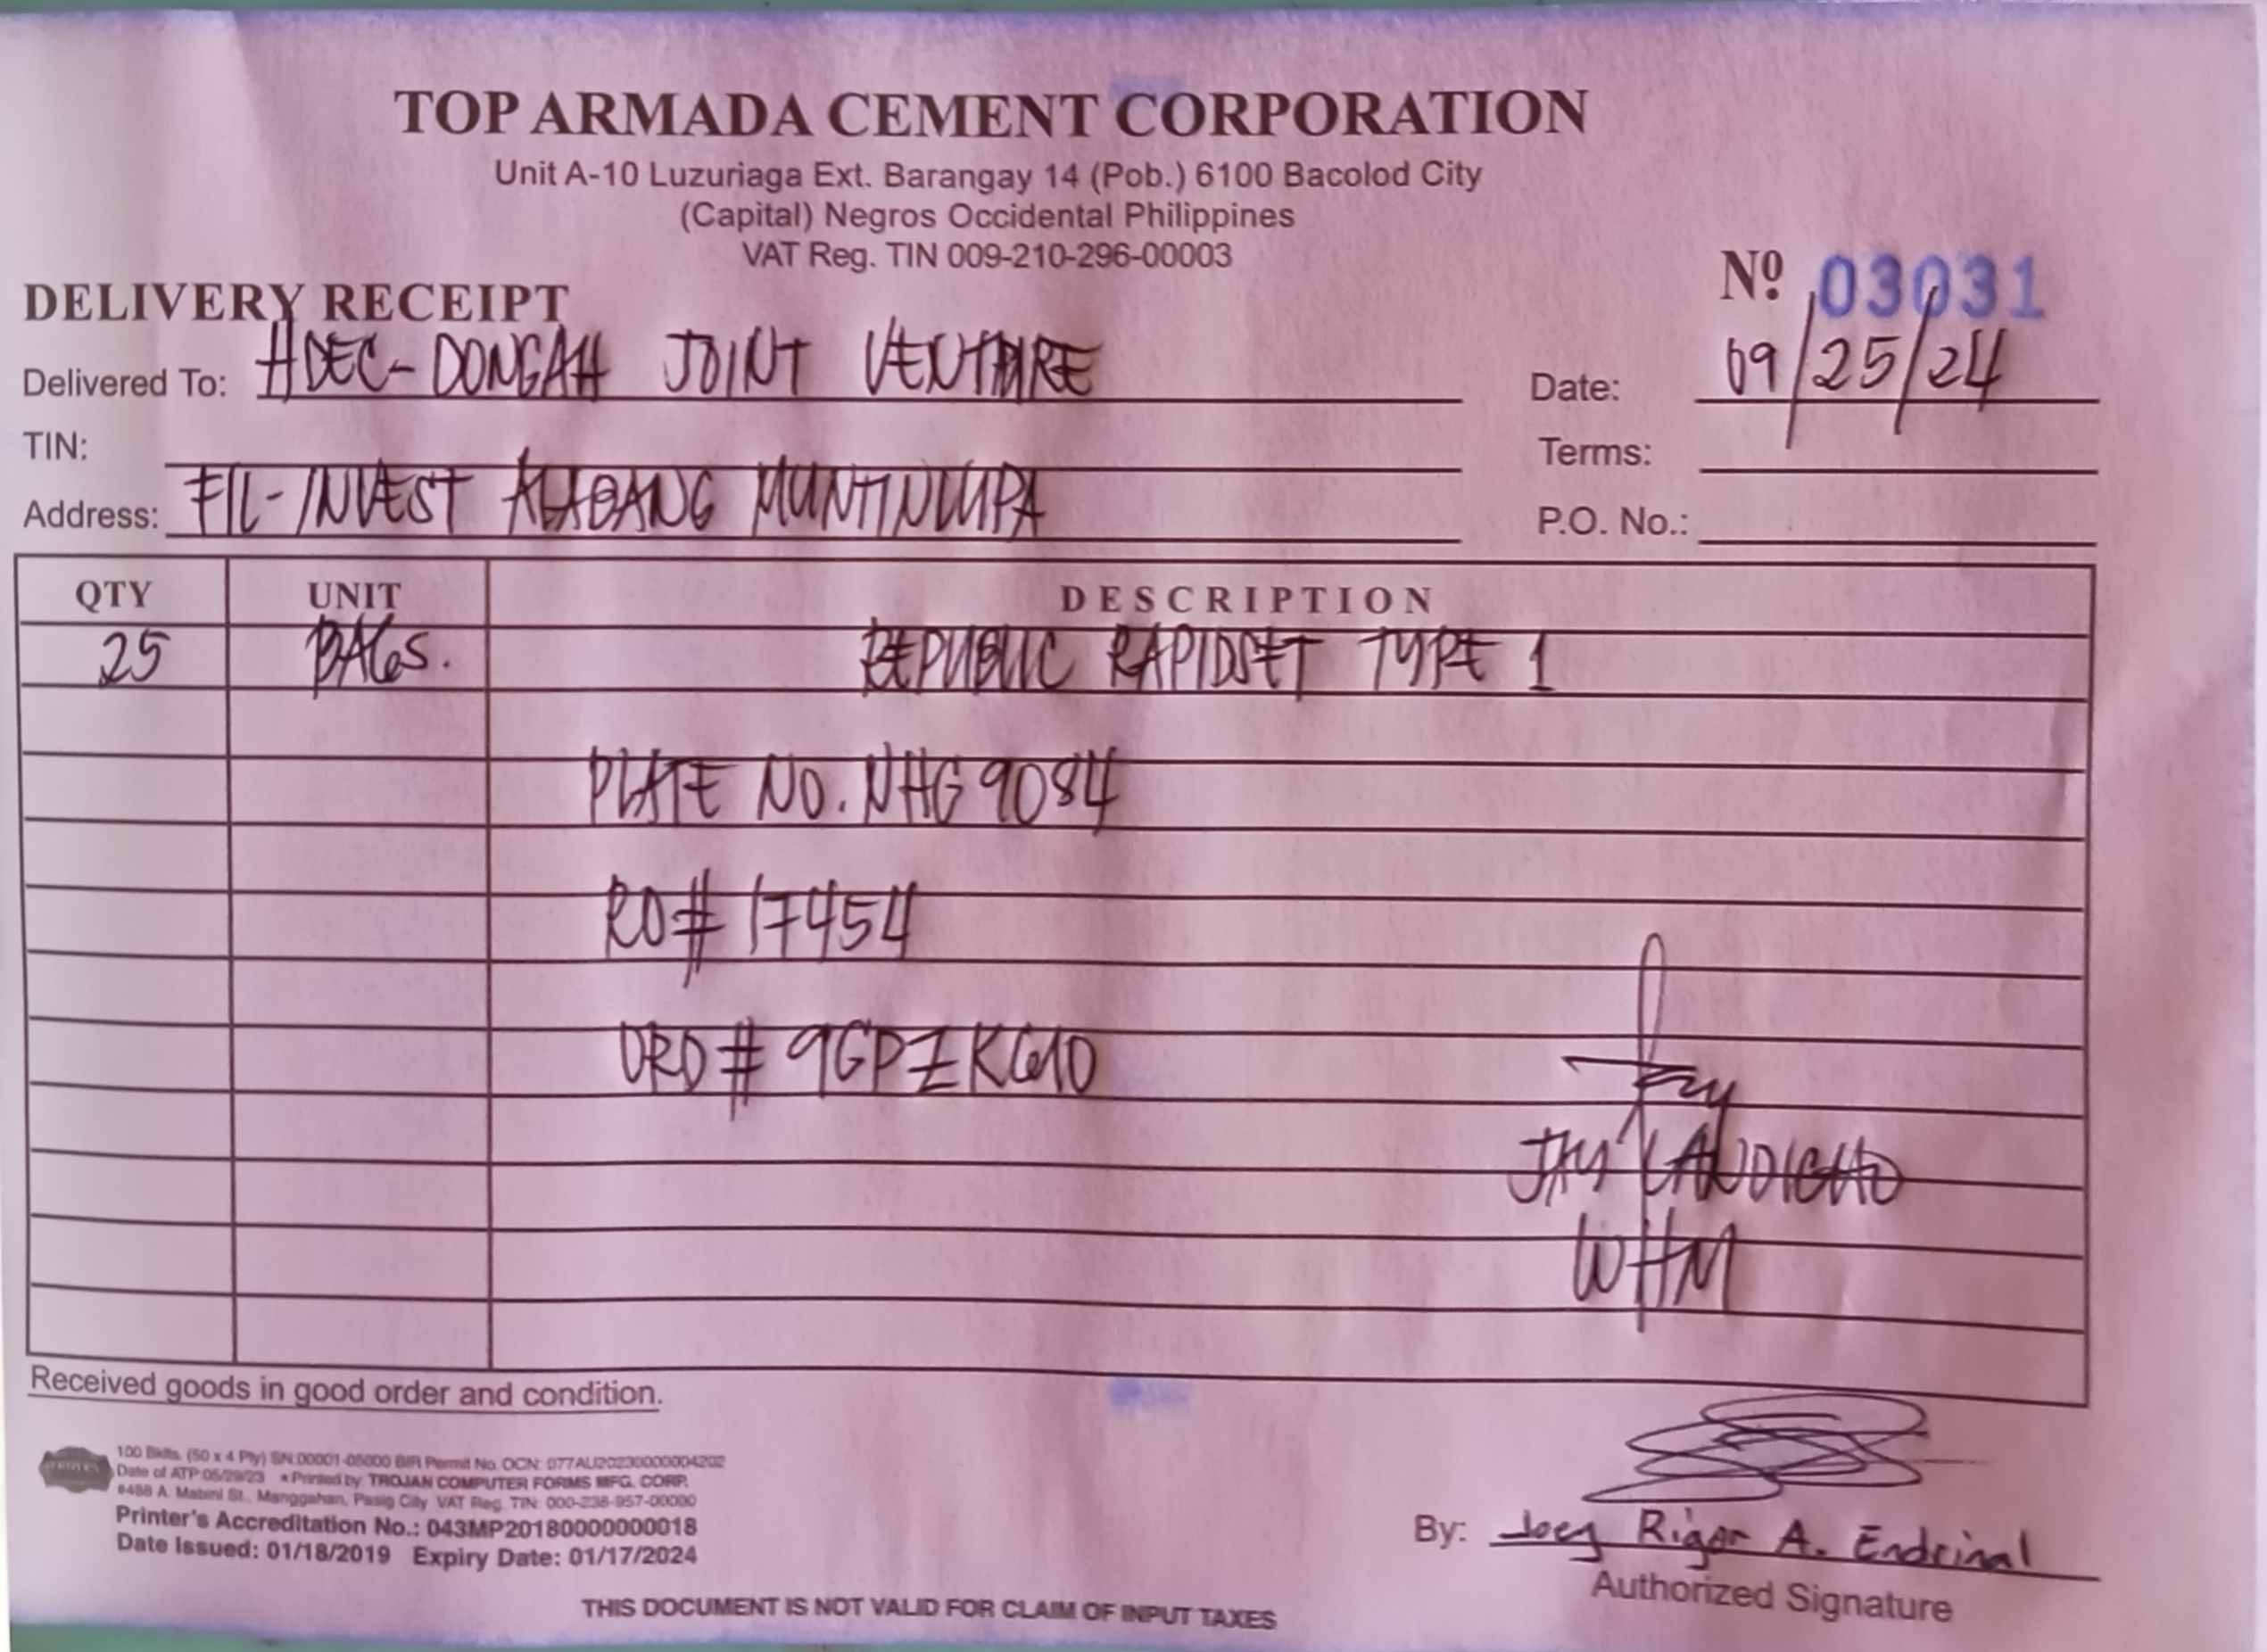 TOP ARMADA CEMENT CORPORATION
Unit A-10 Luzuriaga Ext. Barangay 14 (Pob.) 6100 Bacolod City
(Capital) Negros Occidental Philippines
VAT Reg. TIN 009-210-296-00003
DELIVERY RECEIPT
Nº 03031
Delivered To: HDEC-DONGAH JOINT VENTURE
Date: 09/25/24
TIN:
Terms:
Address: FIL-INVEST ALABANG MUNTINLUPA
P.O. No.:
QTY UNIT DESCRIPTION
25 BAGS. REPUBLIC RAPIDSET TYPE 1
PLATE NO. NHG 9084
RO# 17454
ORO#
JAY LANDICHO
WHM
Received goods in good order and condition.
100 Bklts. (50 x 4 Ply) SN:00001-05000 BIR Permit No. OCN: 077AU20230000004202
Date of ATP 05/29/23 * Printed by: TROJAN COMPUTER FORMS MFG. CORP.
#488 A. Mabini St., Manggahan, Pasig City VAT Reg. TIN: 000-238-957-00000
Printer's Accreditation No.: 043MP20180000000018
Date Issued: 01/18/2019 Expiry Date: 01/17/2024
By: Joey Rigor A. Endrinal
Authorized Signature
THIS DOCUMENT IS NOT VALID FOR CLAIM OF INPUT TAXES